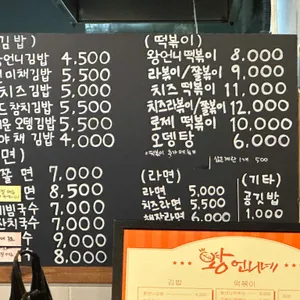 김밥)
왕언니김밥 4,500
야채김밥 5,500
치즈김밥 5,500
참치김밥 5,500
오뎅김밥 5,500
야채 김밥 4,000
(떡볶이)
왕언니떡볶이 8,000
라볶이/쫄볶이 9,000
치즈 떡볶이 11,000
치즈라볶이/쫄볶이 12,000
로제 떡볶이 10,000
오뎅탕 6,000
삶은계란 1개 500
면)
쫄면 7,000
면 8,500
비빔국수 7,000
잔치국수 7,000
9,000
8,000
(라면)
라면 5,000
치즈라면 5,500
(기타)
공깃밥
1,000
왕언니네
김밥 떡볶이